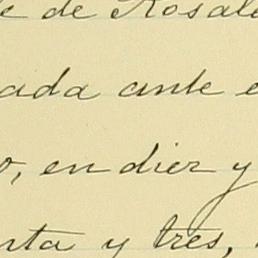 e de Rosale
ada ante e
o, en diez y
nta y tres,